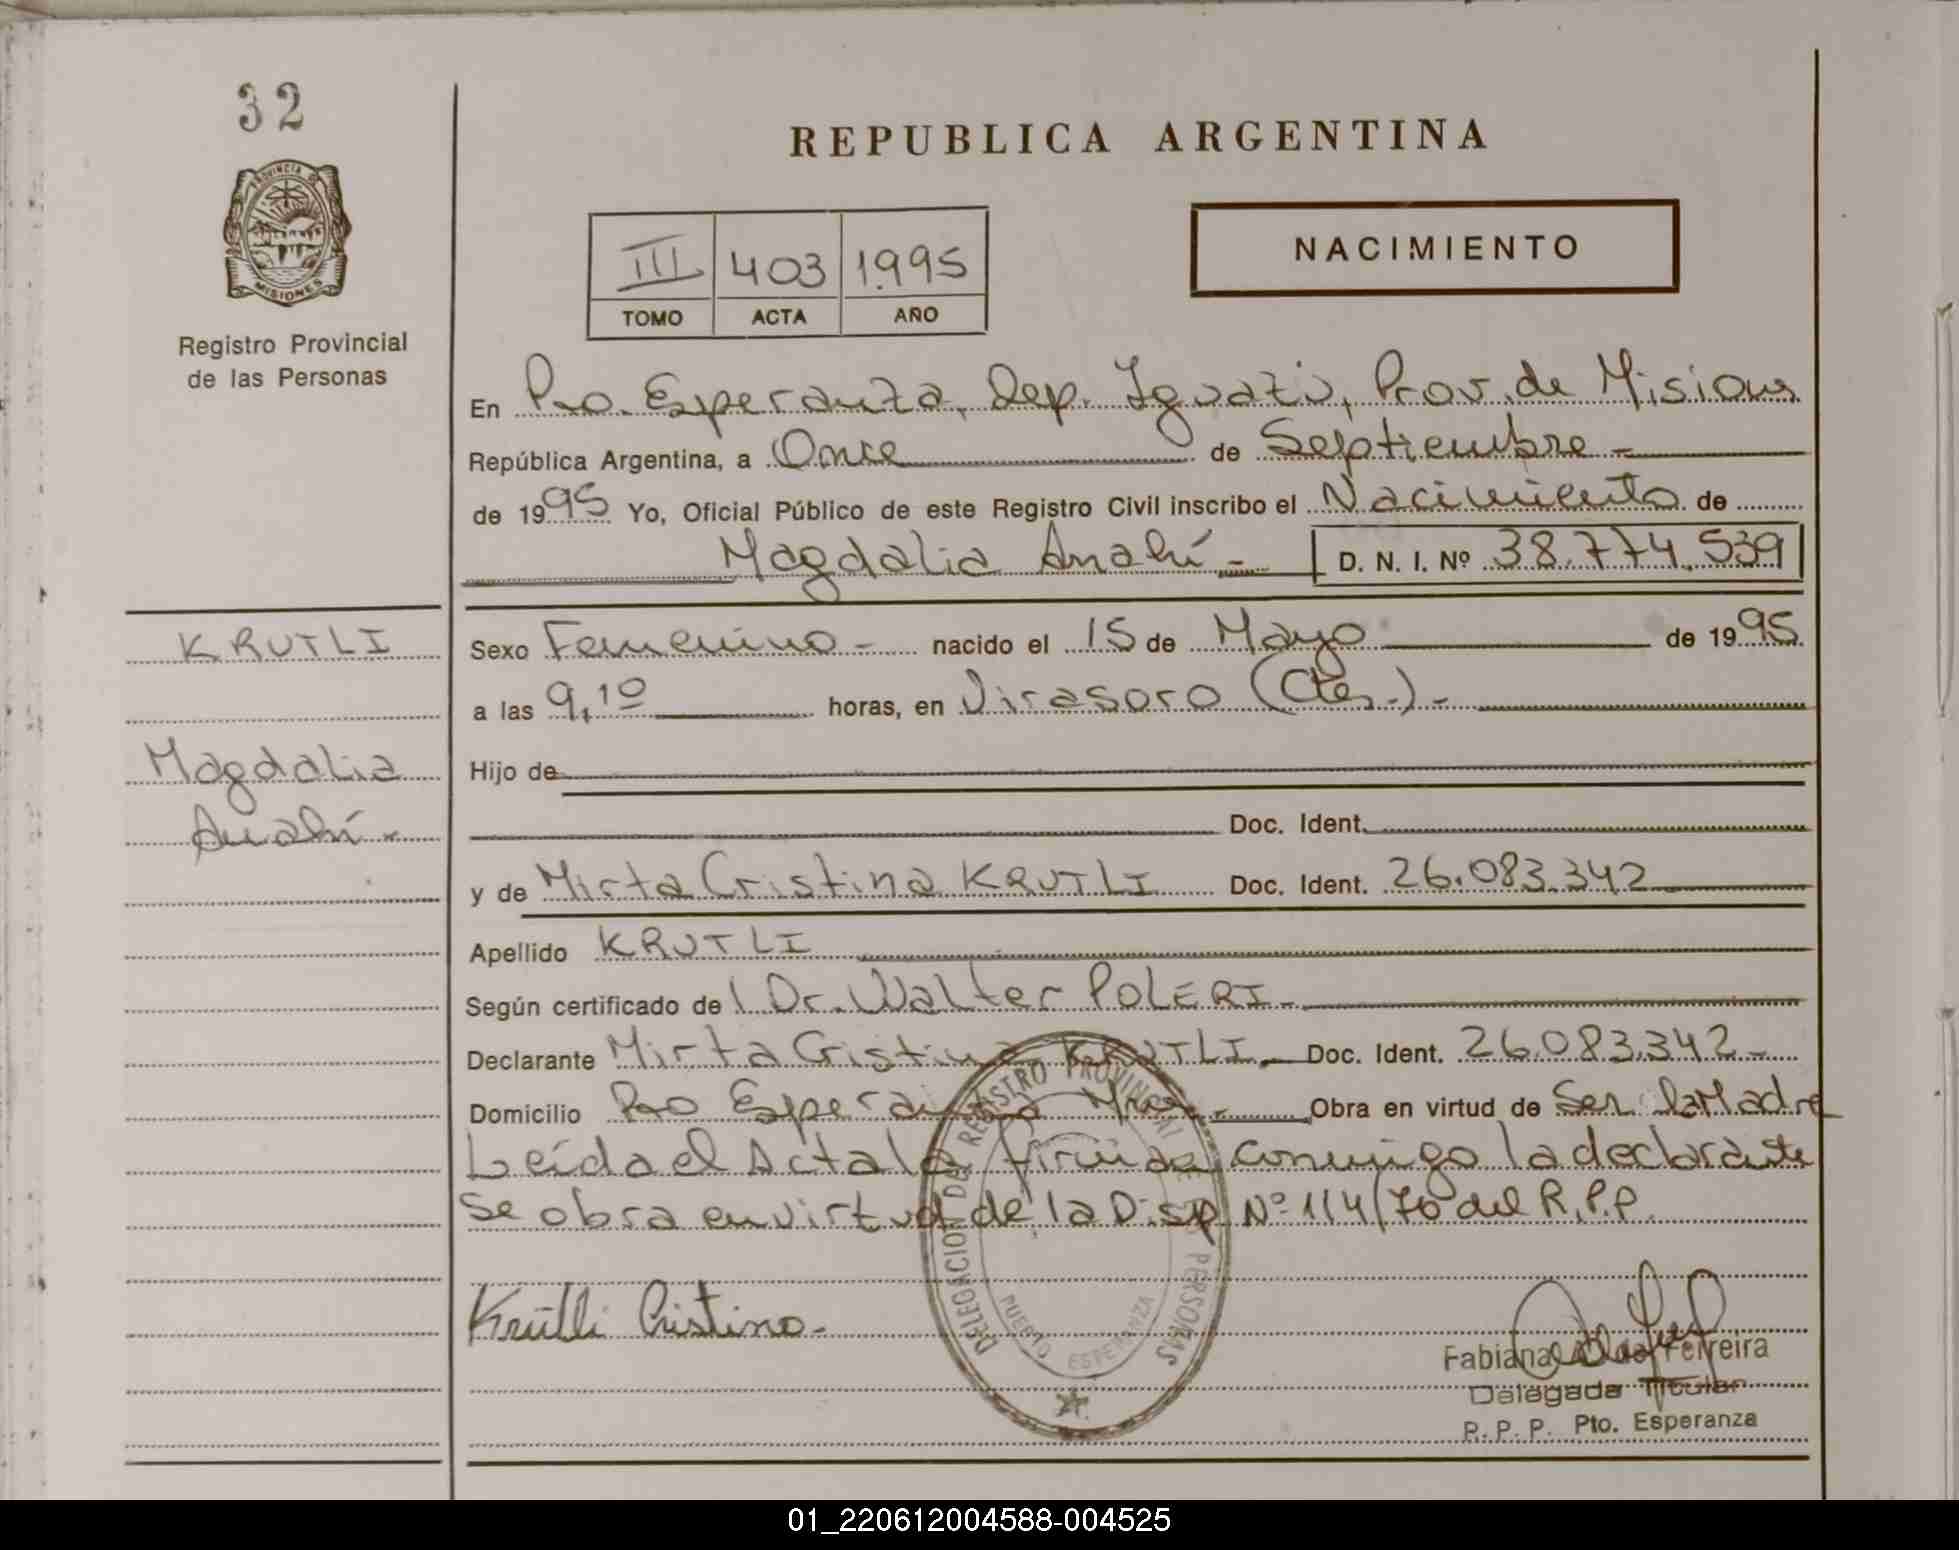 32
PROVINCIA DE
MISIONES
Registro Provincial
de las Personas
REPUBLICA ARGENTINA
NACIMIENTO
III 403 1.995
TOMO ACTA AÑO
En Pto. Esperanza, Dep. Iguazú, Prov. de Misiones
República Argentina, a Once de Septiembre -
de 1995 Yo, Oficial Público de este Registro Civil inscribo el Nacimiento de
Magdalia Anahí - D. N. I. Nº 38.774.539
KRUTLI
Magdalia
Anahí -
Sexo Femenino - nacido el 15 de Mayo de 1995
a las 9,10 horas, en Virasoro (Ctes.) -
Hijo de
Doc. Ident.
y de Mirta Cristina KRUTLI Doc. Ident. 26.083.342
Apellido KRUTLI
Según certificado de l Dr. Walter POLERI -
Declarante Mirta Cristina KRUTLI - Doc. Ident. 26.083.342 -
Domicilio Pto Esperanza Mnes - Obra en virtud de Ser la Madre
Leída el Acta la firma conmigo la declarante
se obra en virtud de la Disp Nº 114/70 del R.P.P.
DELEGACION DEL REGISTRO PROVINCIAL DE LAS PERSONAS
PUERTO ESPERANZA
Krütli Cristina -
Fabiana Ferreira
Delegada Titular
R. P. P. Pto. Esperanza
01_220612004588-004525